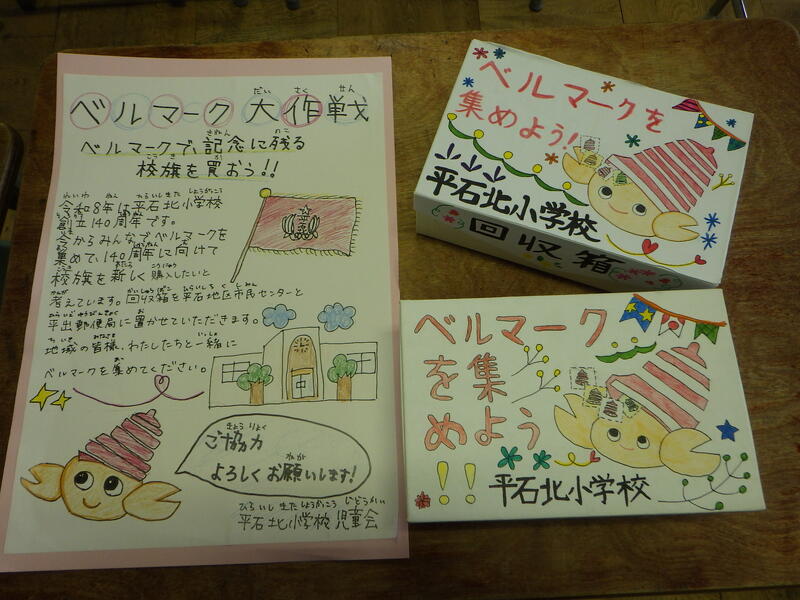 ベルマーク大作戦
ベルマークで記念に残る
校旗を買おう!!
令和8年は平石北小学校
創立140周年です。
今からみんなでベルマークを
集めて、140周年に向けて
校旗を新しく購入したいと
考えています。回収箱を平石地区市民センターと
平出郵便局に置かせていただきます。
地域の皆様、わたしたちと一緒に
ベルマークを集めてください。
ご協力
よろしくお願いします!
平石北小学校児童会
ベルマークを
集めよう!
平石北小学校
回収箱
ベルマーク
を集
めよう
!!
平石北小学校